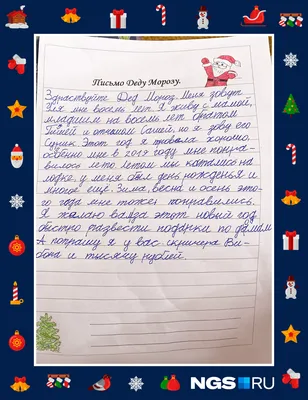 Письмо Деду Морозу.
Здраствуйте Дед Мороз. Меня зовут
мне восемь лет. Я живу с мамой,
младшим на восемь лет братом
и отчимом Сашей, но я зову его
Этот год я провела хорошо.
особенно мне в 2019 году мне понра-
вилось лето летом мы катались на
лодке, у меня был день нождения и
многое ещё. Зима, весна и осень это-
го года мне тоже понравились.
Я желаю вам в этот новый год
быстро развести подарки по домам
А попрашу я у вас скринера Ви-
бона и тысячу рублей.
NGS RU